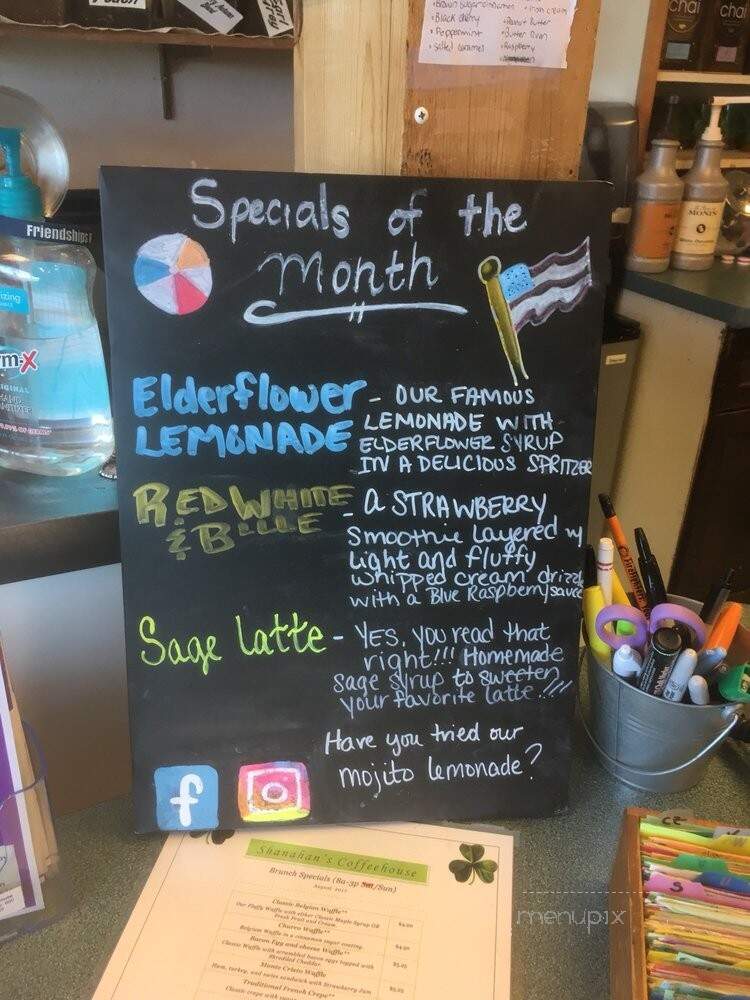 chai
chai
Black cherry
Peanut Butter
Peppermint
Butter Rum
Salted caramel
Raspberry
MONIN
Friendship
Specials of the
Month
Elderflower - OUR FAMOUS
LEMONADE LEMONADE WITH
ELDERFLOWER SYRUP
IN A DELICIOUS SPRITZER
RED WHITE - a STRAWBERRY
& BLUE Smoothie layered w/
light and fluffy
whipped cream drizzle
with a Blue Raspberry sauce
Sage latte - YES, you read that
right!!! Homemade
sage syrup to sweeten
your favorite latte!!!
Have you tried our
mojito lemonade?
f
Shanahan's Coffeehouse
Brunch Specials (8a-3p Sat/Sun)
August 2017
Classic Belgian Waffle**
Our Fluffy Waffle with either Classic Maple Syrup OR
Fresh Fruit and Cream
Churro Waffle**
Belgian Waffle in a cinnamon sugar coating
Bacon Egg and cheese Waffle**
Classic Waffle with scrambled bacon eggs topped with
Shredded Cheddar
Monte Cristo Waffle
Ham, turkey, and swiss sandwich with Strawberry Jam
Traditional French Crepe**
menupix